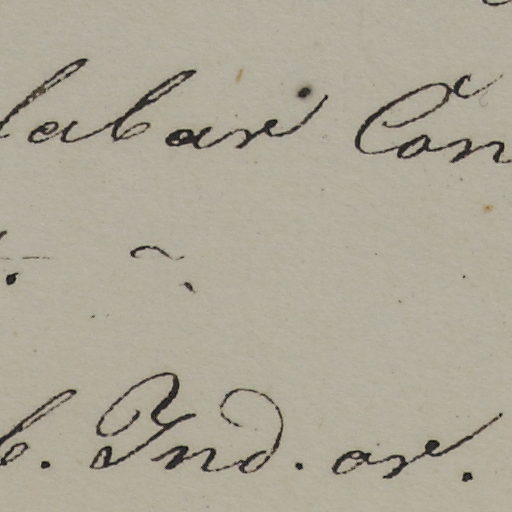 labar Con
b. Ind. or.